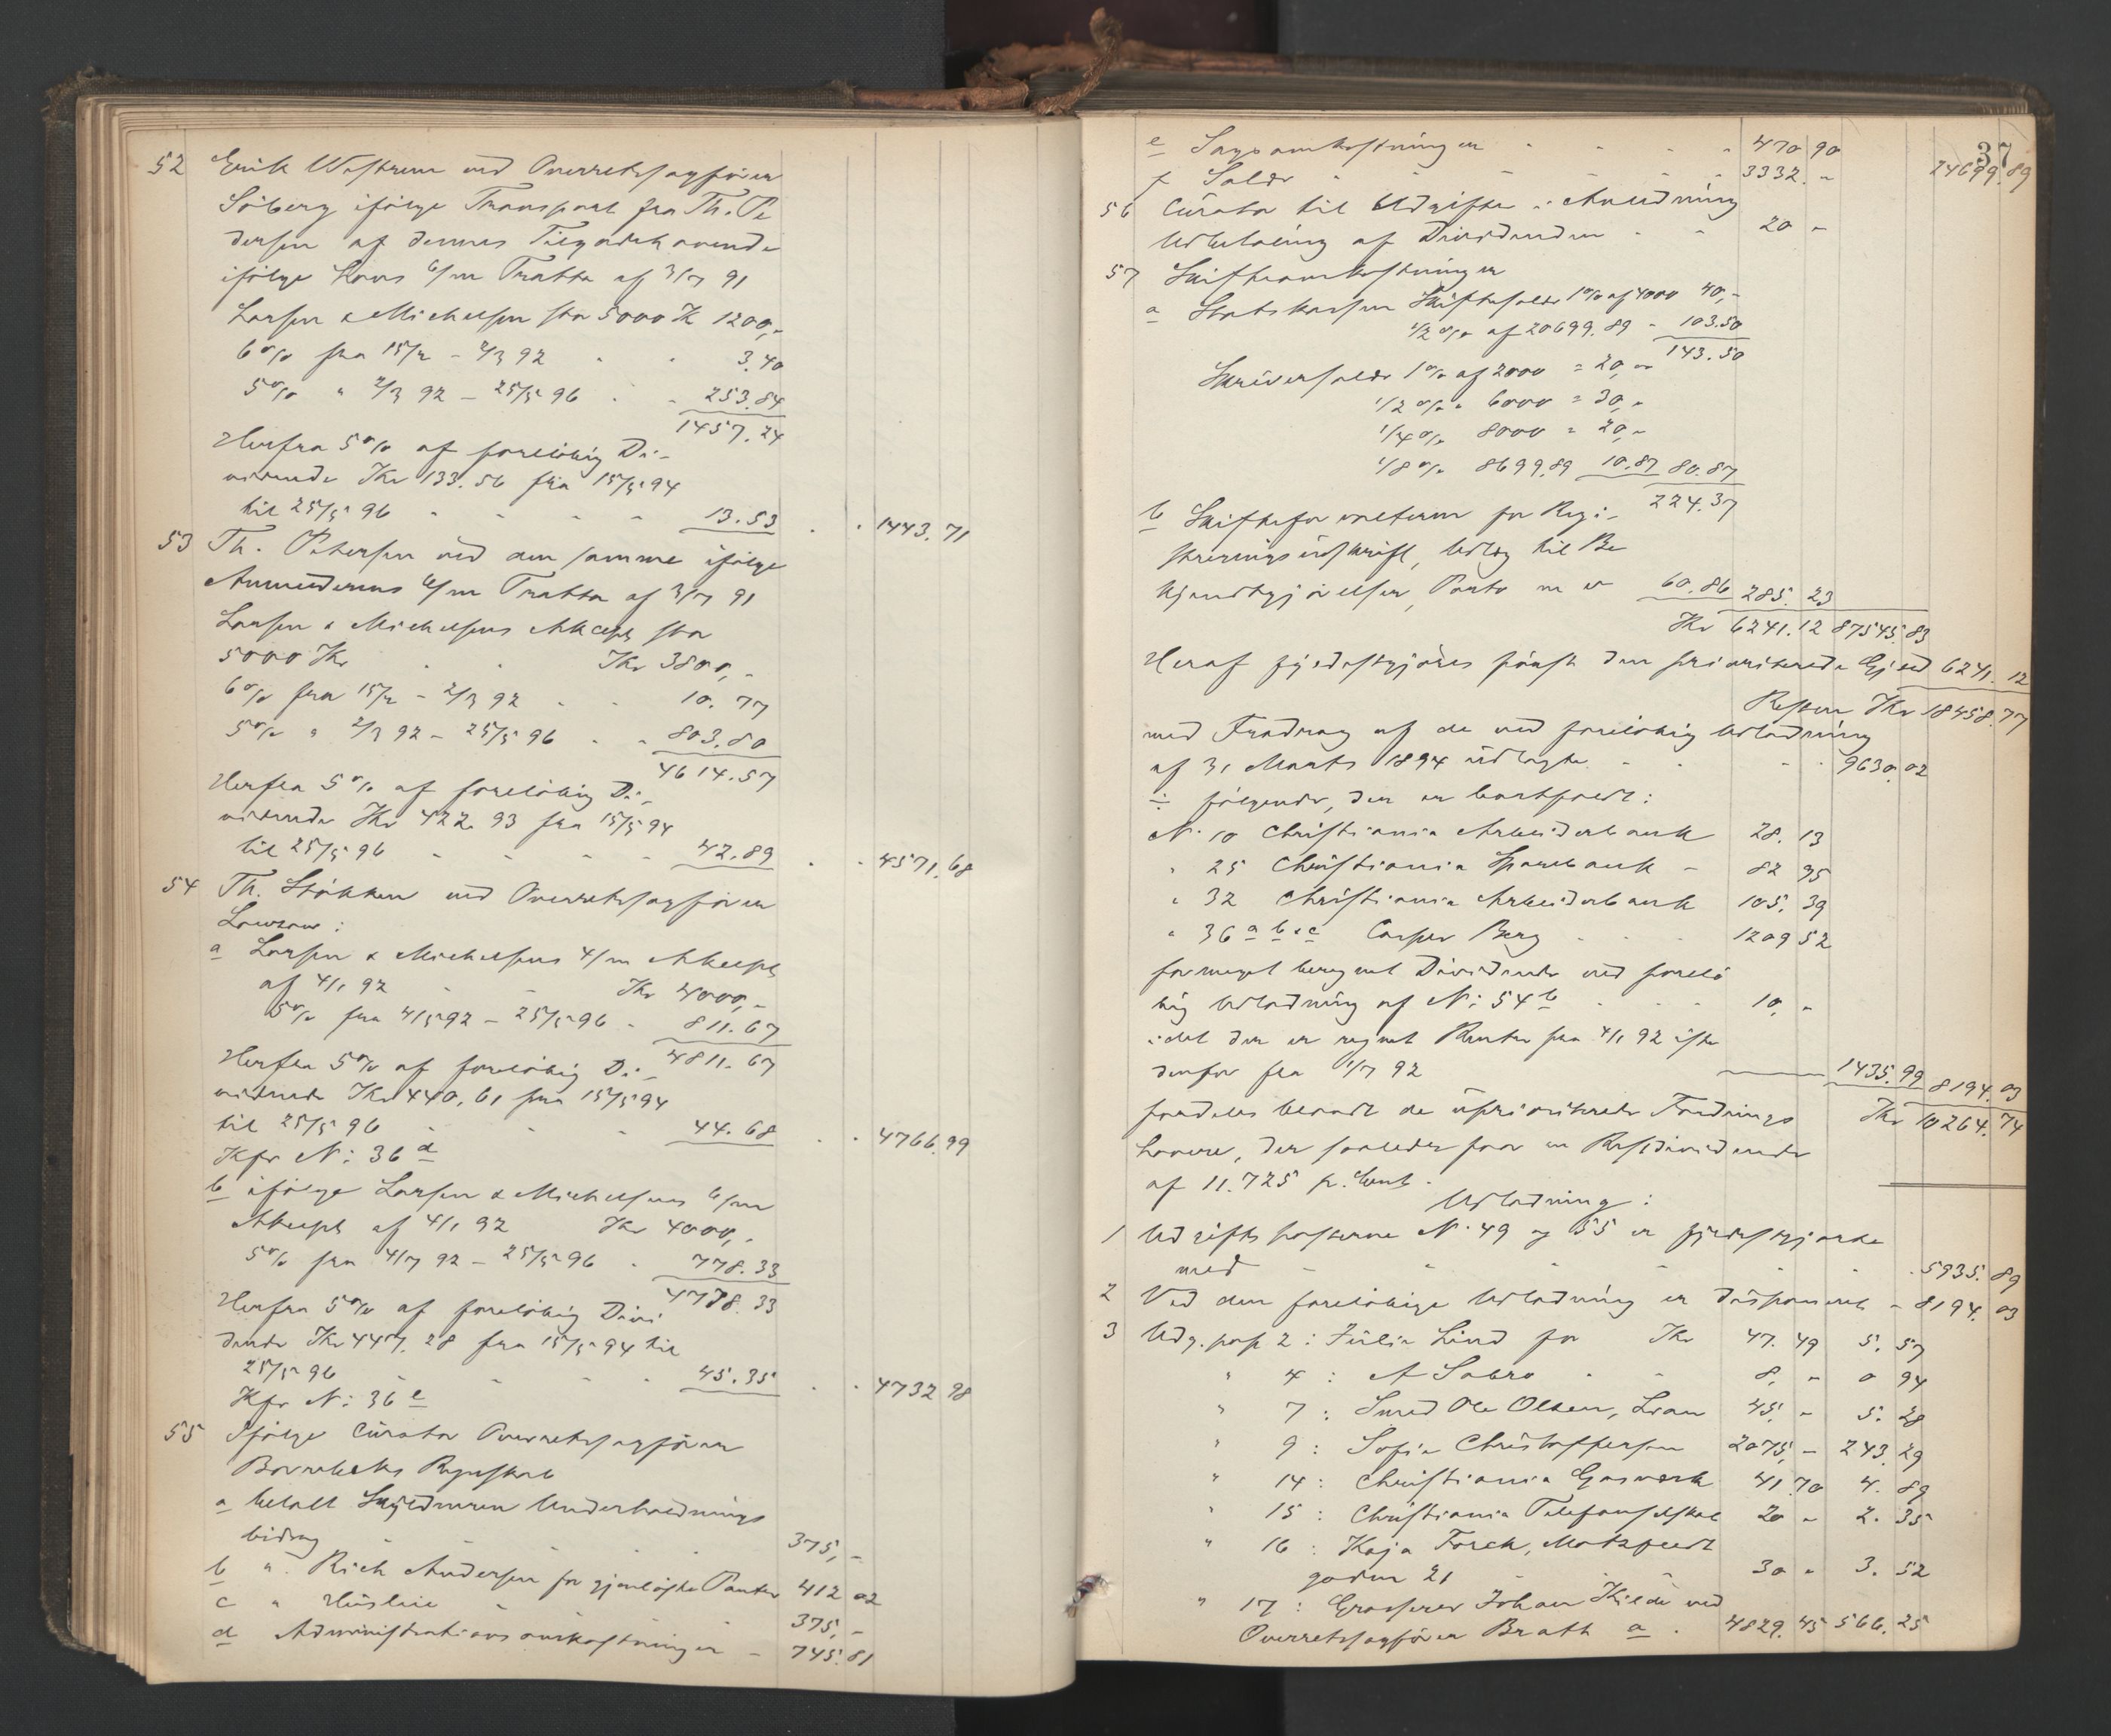 52 Erik Westrum ved Overretssagfører
Solberg ifølge Transport fra Th. Pe
dersen af dennes Tilgodehavende
ifølge Lars 6/m Tratta af 3/7 91
Larsen & Michelsen stor 5000 Kr 1200,-
6% fra 15/2 - 2/3 92 " " 3.40
5% " 2/3 92 - 25/5 96 " - 253.84
1457.24
Herfra 5% af foreløbig Di-
vidende Kr 133.56 fra 15/5 94
til 25/5 96 - - - - 13.53 - - 1443.71
53 Th. Petersen ved den samme ifølge
Anmelderens 6/m Tratta af 3/7 91
Larsen & Michelsens Akcept stor
5000 Kr - - Kr 3800,-
6% fra 15/2 - 2/3 92 - - 10.77
5% " 2/3 92 - 25/5 96 - - 803.80
4614.57
Herfra 5% af foreløbig Di-
vidende Kr 422.93 fra 15/5 94
til 25/5 96 - - - - 42.89 - - 4571.68
54 Th. Støkken ved Overretssagfører
Lowzow:
a Larsen & Michelsens 4/m Akcept
af 4/1 92 - - Kr 4000,-
5% fra 4/5 92 - 25/5 96 - 811.67
4811.67
Herfra 5% af foreløbig Di-
vidende Kr 440.61 fra 15/5 94
til 25/5 96 - - - 44.68 - - 4766.99
Kfr N: 36 d
b ifølge Larsen & Michelsens 6/m
Akcept af 4/1 92 Kr 4000,-
5% fra 4/7 92 - 25/5 96 - 778.33
4778.33
Herfra 5% af foreløbig Divi
dende Kr 447.28 fra 15/5 94 til
25/5 96 - - - - 45.35 - - 4732 98
Kfr N: 36 e
55 Ifølge Curator Overretssagfører
Regnskab
a betalt Skyldneren Underholdnings
bidrag 375,-
b " Rich Andersen for gjenløste Panter 412 02
c " Husleie - 375,-
d Administrationsomkostninger - 745.81
37
e Sagsomkostninger - - - - 470 90 24699.89
f Salær - - - - 3332. -
56 Curator til Udgifter i Anledning
Udbetaling af Dividenden - - 20 -
57 Skifteomkostninger
a Statskassen Skiftesalær 1% af 4000 40,-
1/2 % af 20699.89 - 103.50
143.50
Skriversalær 1% af 2000 = 20,-
1/2 % " 6000 = 30,-
1/4 % 8000 = 20,-
1/8 % 8699.89 10.87 80.87
224.37
b Skifteforvalteren for Regi-
streringsudskrift, Udlæg til Be
kjendtgjørelser, Porto m v 60.86 285. 23
Kr 6241.12 87545.83
Heraf fyldestgjøres først den prioriterede Gjæld 6241. 12
Resten Kr 18458.77
med Fradrag af de ved foreløbig Udlodning
af 31 Marts 1894 udlagte - - - - 9630.02
÷ følgende, der er bortfaldt:
N: 10 Christiania Arbeiderbank 28. 13
" 25 Christiania Sparebank - 82 95
" 32 Christiania Arbeiderbank 105. 39
" 36 a b & c Casper Berg - - - 1209 52
formeget beregnet Dividende ved forelø
big Udlodning af N: 54 b - - - 10, -
idet der er regnet Renter fra 4/1 92 iste
denfor fra 4/7 92 1435.99 8194.03
fordeles blandt de uprioriterede Fordrings Kr 10264.74
havere, der saaledes faar en Restdividende
af 11.725 p. Cent.
Udlodning:
1 Udgiftsposterne N: 49 og 55 er fyldestgjorte
med - - - - - - 5935.89
2 Ved den foreløbige Udlodning er disponeret - 8194.03
3 Udg. post 2: Julie Lind for Kr 47. 49 5. 57
" 4: A Sabro - - 8. - 0 94
" 7: Smed Ole Olsen, Lian 45. - 5. 28
" 9: Sofie Christoffersen 2075,- 243. 29
" 14: Christiania Gasværk 41.70 4. 89
" 15: Christiania Telefonselskab 20 - 2. 35
" 16: Kaja Torch, Motzfeldt
gaden 21 - - 30 - 3. 52
" 17: Grosserer Johan Kilde ved
Overretssagfører Brath a - 4829.45 566. 25